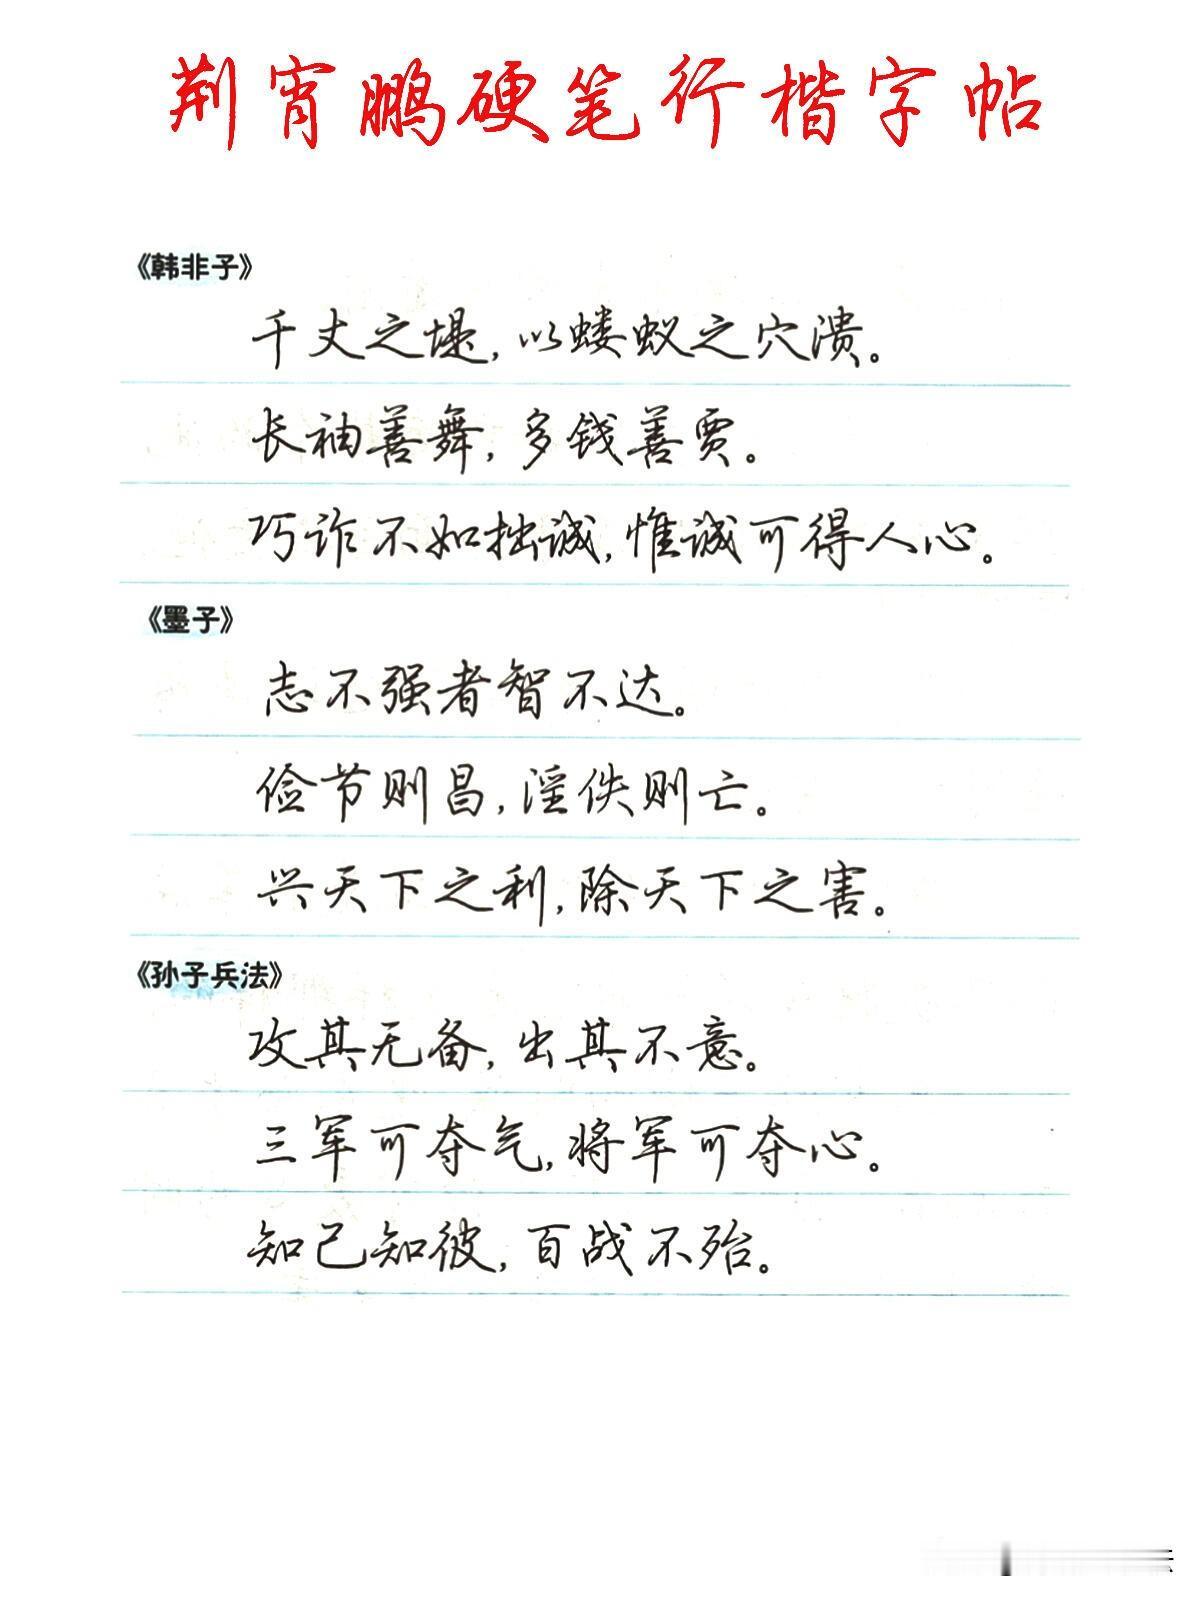 荆宵鹏硬笔行楷字帖
《韩非子》
千丈之堤,以蝼蚁之穴溃。
长袖善舞,多钱善贾。
巧诈不如拙诚,惟诚可得人心。
《墨子》
志不强者智不达。
俭节则昌,淫佚则亡。
兴天下之利,除天下之害。
《孙子兵法》
攻其无备,出其不意。
三军可夺气,将军可夺心。
知己知彼,百战不殆。